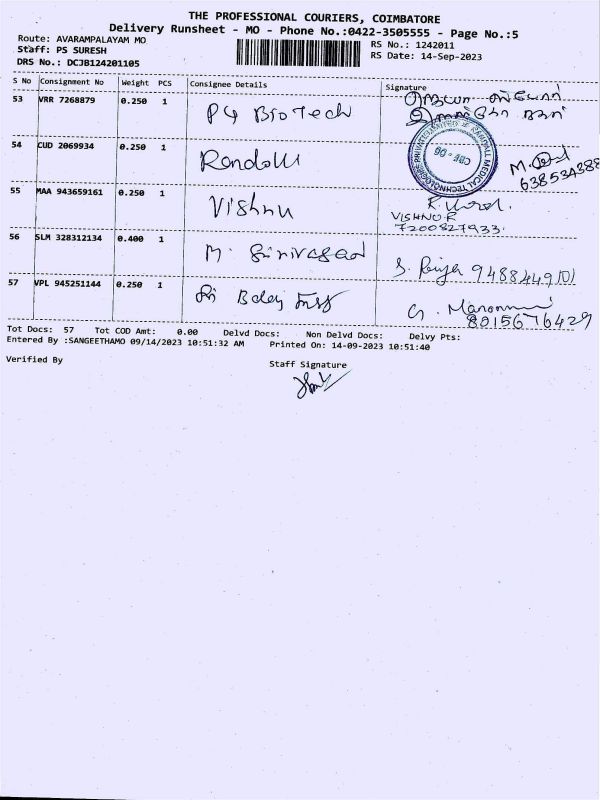 THE PROFESSIONAL COURIERS, COIMBATORE
Delivery Runsheet - MO - Phone No.:0422-3505555 - Page No.:5
Route: AVARAMPALAYAM MO
RS No.: 1242011
Staff: PS SURESH
RS Date: 14-Sep-2023
DRS No.: DCJB124201105
S No Consignment No Weight PCS Consignee Details Signature
53 VRR 7268879 0.250 1 PG BioTech
54 CUD 2069934 0.250 1 Randall
CBE - 06
55 MAA 943659161 0.250 1 Vishnu
VISHNU.R
7200827933.
56 SLM 328312134 0.400 1 M. Srinivasan S. Priya 9488449101
57 VPL 945251144 0.250 1 Sri Balaji
8015676429
Tot Docs: 57 Tot COD Amt: 0.00 Delvd Docs: Non Delvd Docs: Delvy Pts:
Entered By :SANGEETHAMO 09/14/2023 10:51:32 AM Printed On: 14-09-2023 10:51:40
Verified By Staff Signature